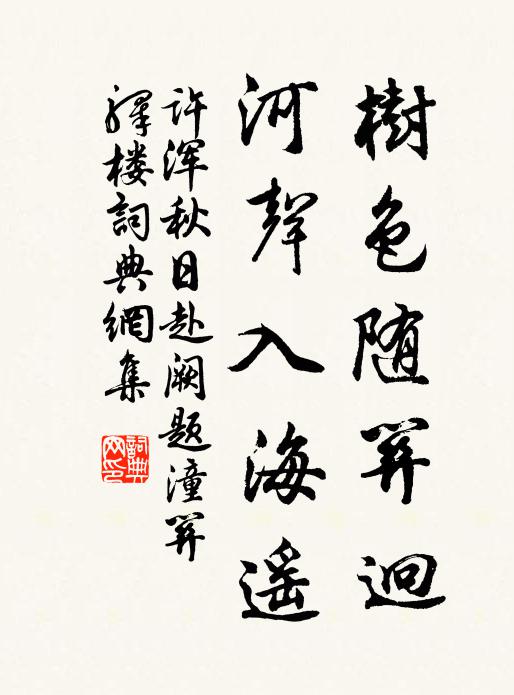 樹色随關迥
河聲入海遥
許渾秋日赴闕題潼關
驛楼詞典網集
詞典
网印